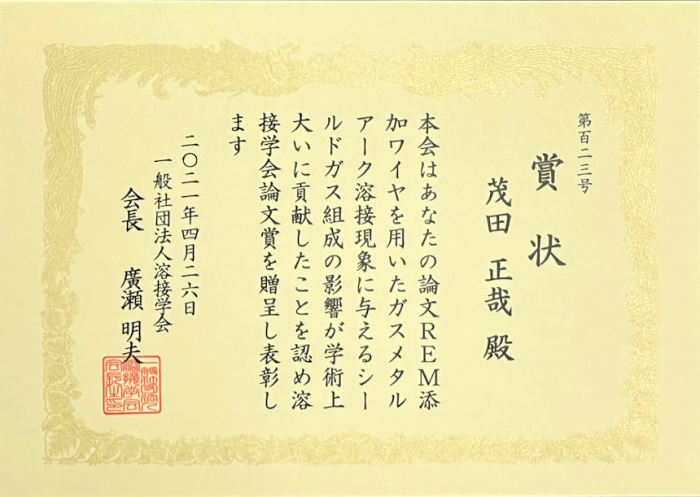 第百二三号
賞状
茂田 正哉 殿
本会はあなたの論文ＲＥＭ添
加ワイヤを用いたガスメタル
アーク溶接現象に与えるシー
ルドガス組成の影響が学術上
大いに貢献したことを認め溶
接学会論文賞を贈呈し表彰し
ます
二〇二一年四月二六日
一般社団法人溶接学会
会長 廣瀬 明夫